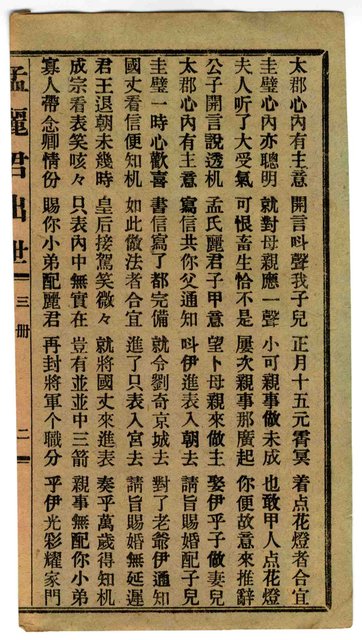 太郡心內有主意　開言叫聲我子兒　正月十五元霄冥　着点花燈者合宜
圭璧心內亦聰明　就對母親應一聲　小可親事做未成　也敢甲人点花燈
夫人听了大受氣　可恨畜生恰不是　屢次親事那廣起　你便故意來推辭
公子開言說透机　孟氏麗君子甲意　望卜母親來做主　娶伊乎子做妻兒
太郡心內有主意　寫信共你父通知　叫伊進表入朝去　請旨賜婚配子兒
圭璧一時心歡喜　書信寫了都完備　就令劉奇京城去　對了老爺伊通知
國丈看信便知机　如此做法者合宜　進了只表入宮去　請旨賜婚無延遲
君王退朝未幾時　皇后接駕笑微々　就將國丈來進表　奏乎萬歲得知机
成宗看表笑咳々　只表內中無實在　豈有並並中三箭　親事無配你小弟
寡人帶念卿情份　賜你小弟配麗君　再封將軍个職分　乎伊光彩耀家門
孟麗君出世　三冊　二